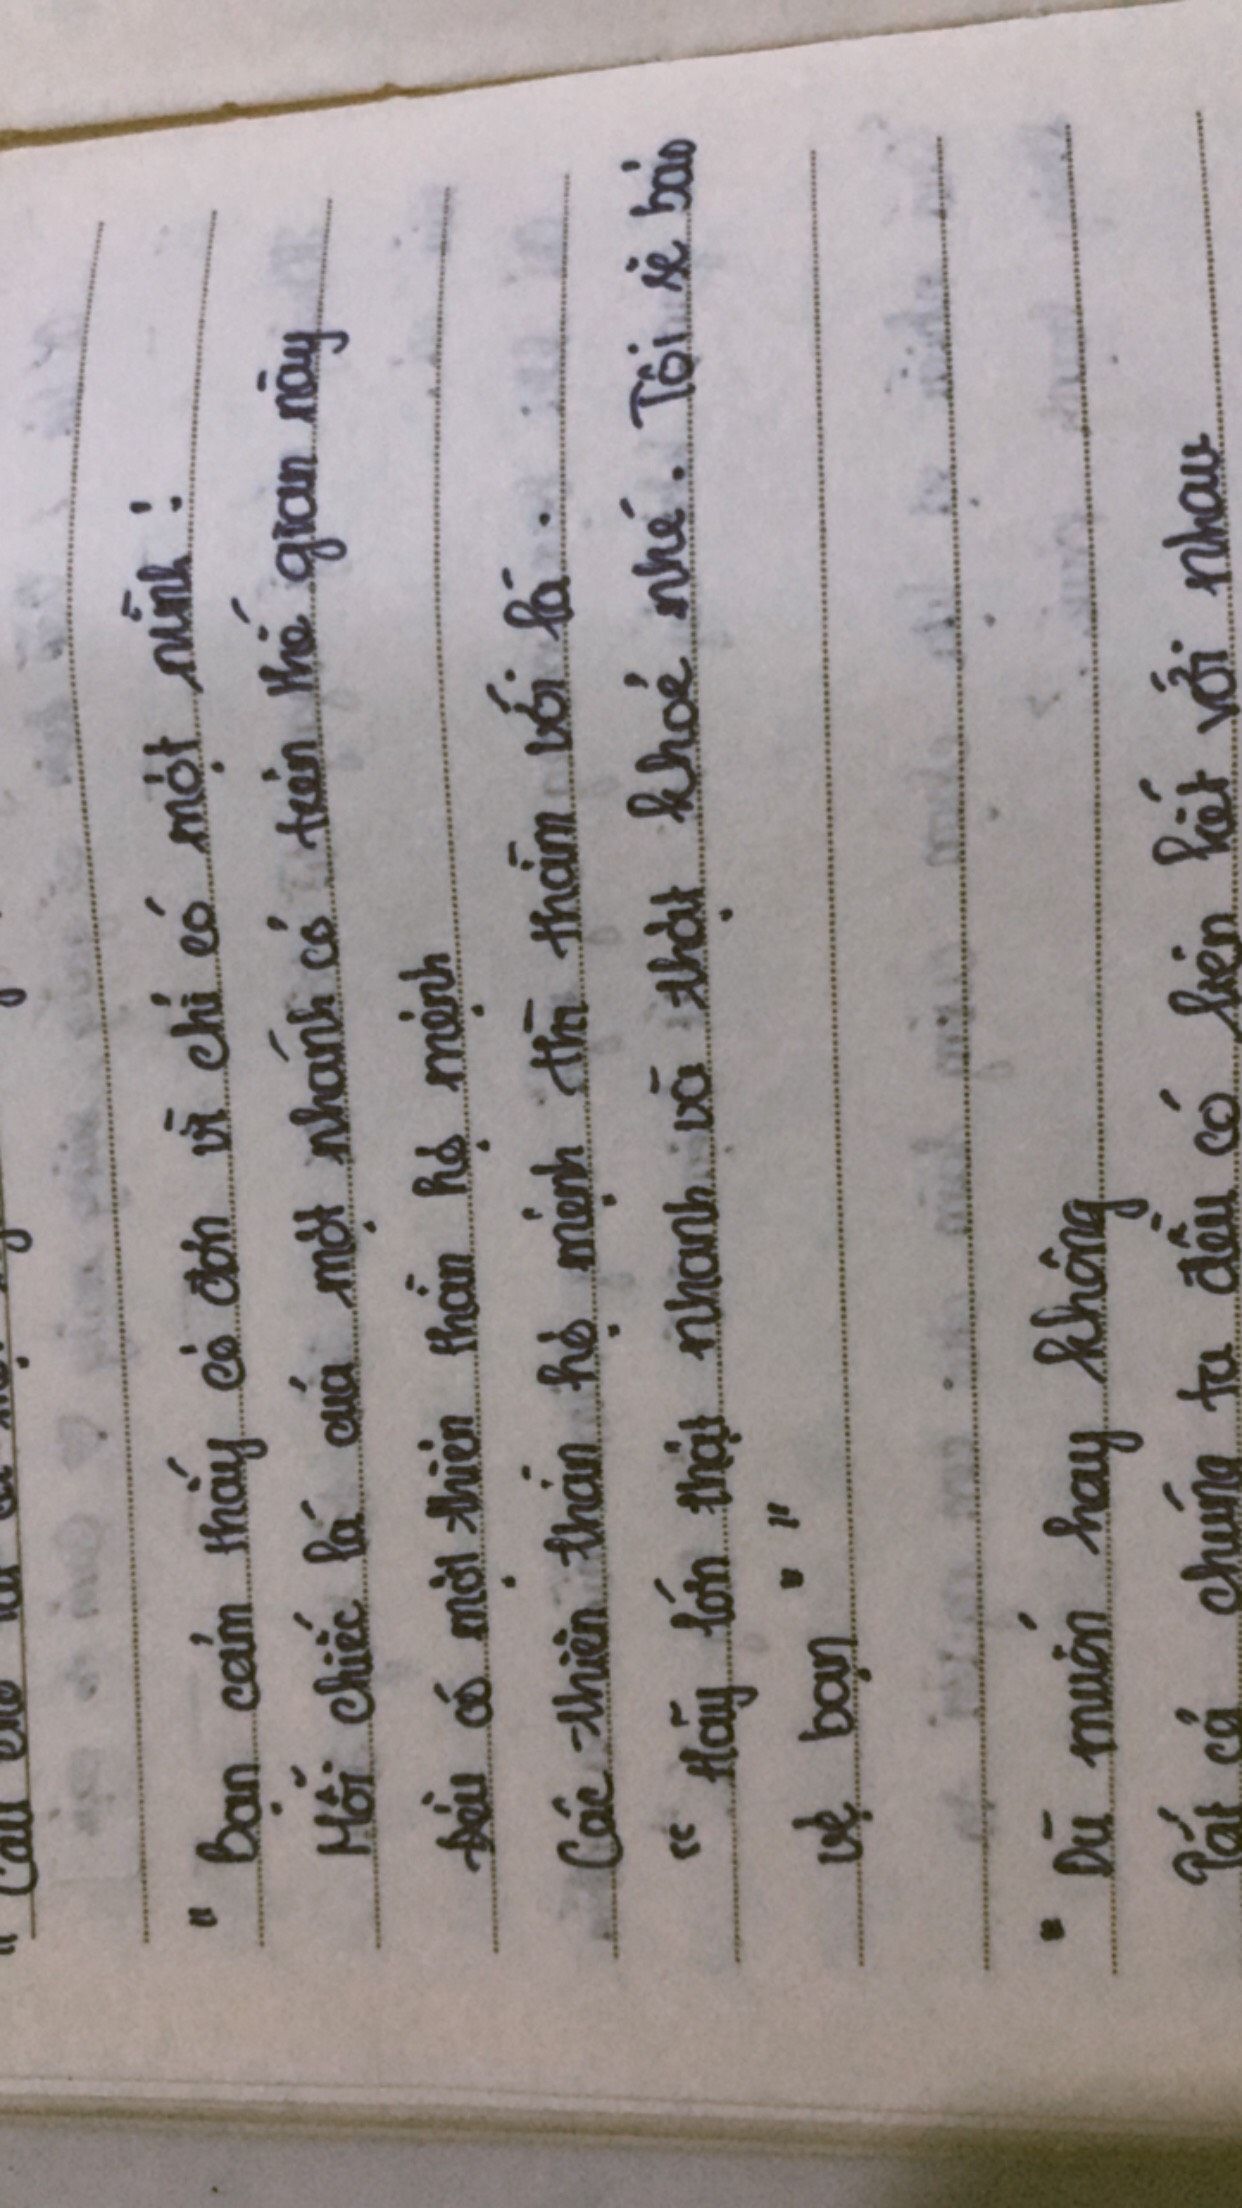 " Bạn cảm thấy cô đơn vì chỉ có một mình :
Mỗi chiếc lá của một nhánh cỏ trên thế gian này
Đều có một thiên thần hộ mệnh
Các thiên thần hộ mệnh thì thầm với lá .
" Hãy lớn thật nhanh và thật khoẻ nhé . Tôi sẽ bảo
vệ bạn " "
" Dù muốn hay không
Tất cả chúng ta đều có liên kết với nhau